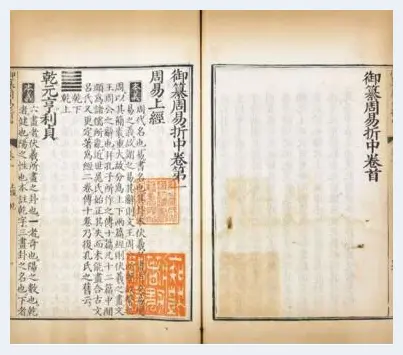 御纂周易折中卷首
御纂周易折中卷第一
周易上經
本義
周代名也易書名也其卦本伏羲
易之義故謂之易其辭則文王
周以其簡袠重大故分為上下兩篇經則伏羲之畫文
王周公之辭也并孔子所作之傳十篇凡十二篇中間
頗為諸儒所亂近世晁氏始正其失而未能盡合古文
呂氏又更定著為經二卷傳十卷乃復孔氏之舊云
乾下
乾上
乾元亨利貞
本義
六畫者伏羲所畫之卦也一者奇也陽之數也乾
者健也陽之性也本註乾字三畫卦之名也下者